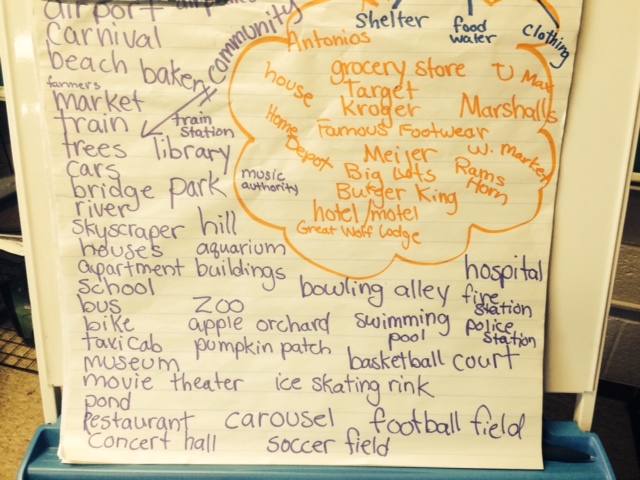 airport
Carnival
community
beach bakery
farmers
market
train
train
station
trees library
cars
bridge park
music
authority
river
skyscraper hill
houses aquarium
apartment buildings
school
bus zoo
bike apple orchard
taxicab pumpkin patch
museum
movie theater ice skating rink
pond
restaurant carousel football field
concert hall soccer field
bowling alley
swimming
pool
basketball court
hospital
fire
station
police
station
Shelter
food
water
clothing
Antonios
grocery store
house
Target
Kroger
TJ Max
Marshalls
Famous Footwear
Home
Depot
Meijer
W. market
Big Lots
Rams
Horn
Burger King
hotel/motel
Great Wolf Lodge